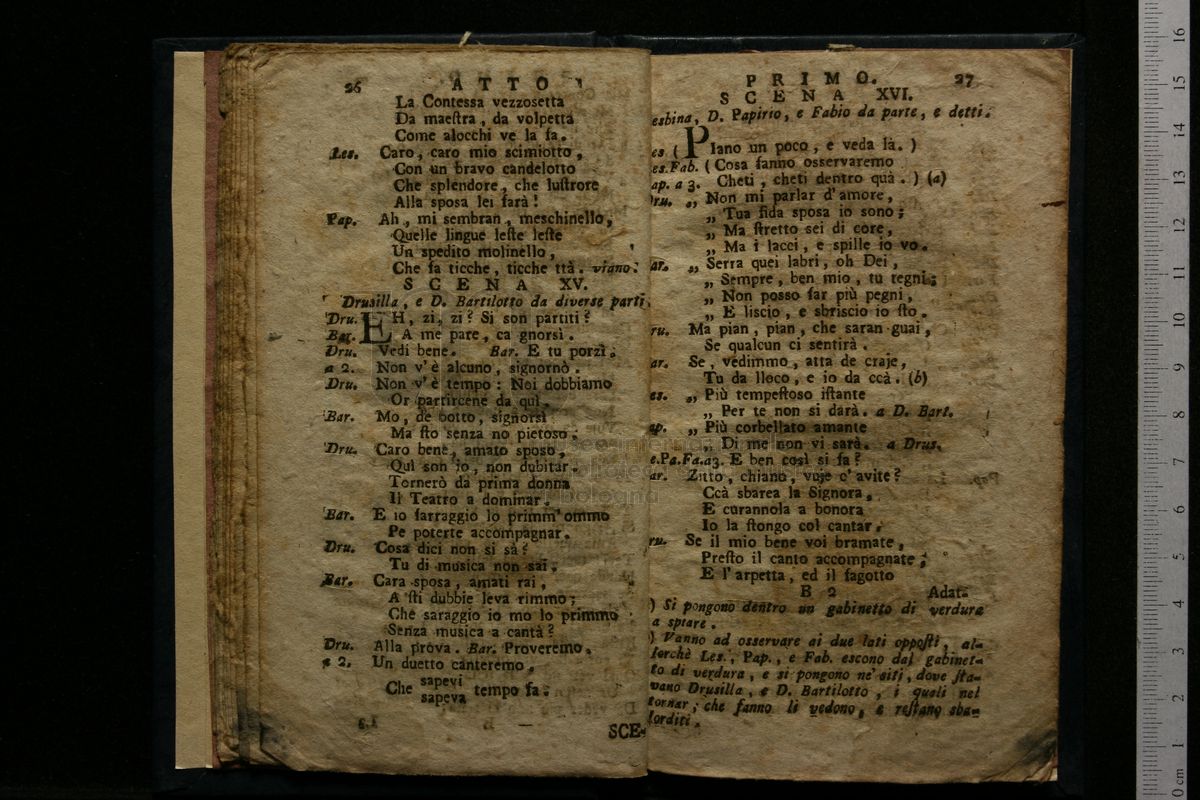 26 ATTO
La Contessa vezzosetta
Da maeſtra, da volpetta
Come alocchi ve la fa.
Les. Caro, caro mio scimiotto,
Con un bravo candelotto
Che splendore, che luſtrore
Alla sposa lei farà!
Pap. Ah, mi sembran, meschinello,
Quelle lingue leſte leſte
Un spedito molinello,
Che fa ticche, ticche ttà. viano.
SCENA XV.
Drusilla, e D. Bartilotto da diverse parti.
Dru. EH, zi, zi? Si son partiti?
Bar. A me pare, ca gnorsì.
Dru. Vedi bene. Bar. E tu porzì.
a 2. Non v'è alcuno, signornò.
Dru. Non v'è tempo: Noi dobbiamo
Or partircene da quì.
Bar. Mo, de botto, signorsì
Ma ſto senza no pietoso.
Dru. Caro bene, amato sposo,
Quì son io, non dubitar.
Tornerò da prima donna
Il Teatro a dominar.
Bar. E io sarraggio lo primm'ommo
Pe poterte accompagnar.
Dru. Cosa dici non si sà?
Tu di musica non sai.
Bar. Cara sposa, amati rai,
A ſti dubbie leva rimmo;
Che saraggio io mo lo primmo
Senza musica a cantà?
Dru. Alla prova. Bar. Proveremo.
a 2. Un duetto canteremo.
Che sapevi tempo fa.
sapeva
SCE-
PRIMO. 27
SCENA XVI.
esbina, D. Papirio, e Fabio da parte, e detti.
es ( PIano un poco, e veda là. )
es.Fab. ( Cosa fanno osservaremo
ap. a 3. Cheti, cheti dentro quà. ) (a)
ru. „ Non mi parlar d'amore,
„ Tua fida sposa io sono;
„ Ma ſtretto sei di core,
„ Ma i lacci, e spille io vo.
ar. „ Serra quei labri, oh Dei,
„ Sempre, ben mio, tu regni;
„ Non posso far più pegni,
„ E liscio, e sbriscio io ſto.
ru. Ma pian, pian, che saran guai,
Se qualcun ci sentirà.
ar. Se, vedimmo, atta de craje,
Tu da lloco, e io da ccà. (b)
es. „ Più tempeſtoso iſtante
„ Per te non si darà. a D. Bart.
ap. „ Più corbellato amante
„ Di me non vi sarà. a Drus.
e.Pa.Fa.a3. E ben così si fa?
ar. Zitto, chiano, vuje c'avite?
Ccà sbarea la Signora,
E curannola a bonora
Io la ſtongo col cantar.
ru. Se il mio bene voi bramate,
Preſto il canto accompagnate;
E l'arpetta, ed il fagotto
B 2 Adat-
) Si pongono dentro un gabinetto di verdura
a spiare.
) Vanno ad osservare ai due lati oppoſti, al-
lorchè Les., Pap., e Fab. escono dal gabinet-
to di verdura, e si pongono ne' siti, dove ſta-
vano Drusilla, e D. Bartilotto, i quali nel
tornar, che fanno li vedono, e reſtano sba-
lorditi.